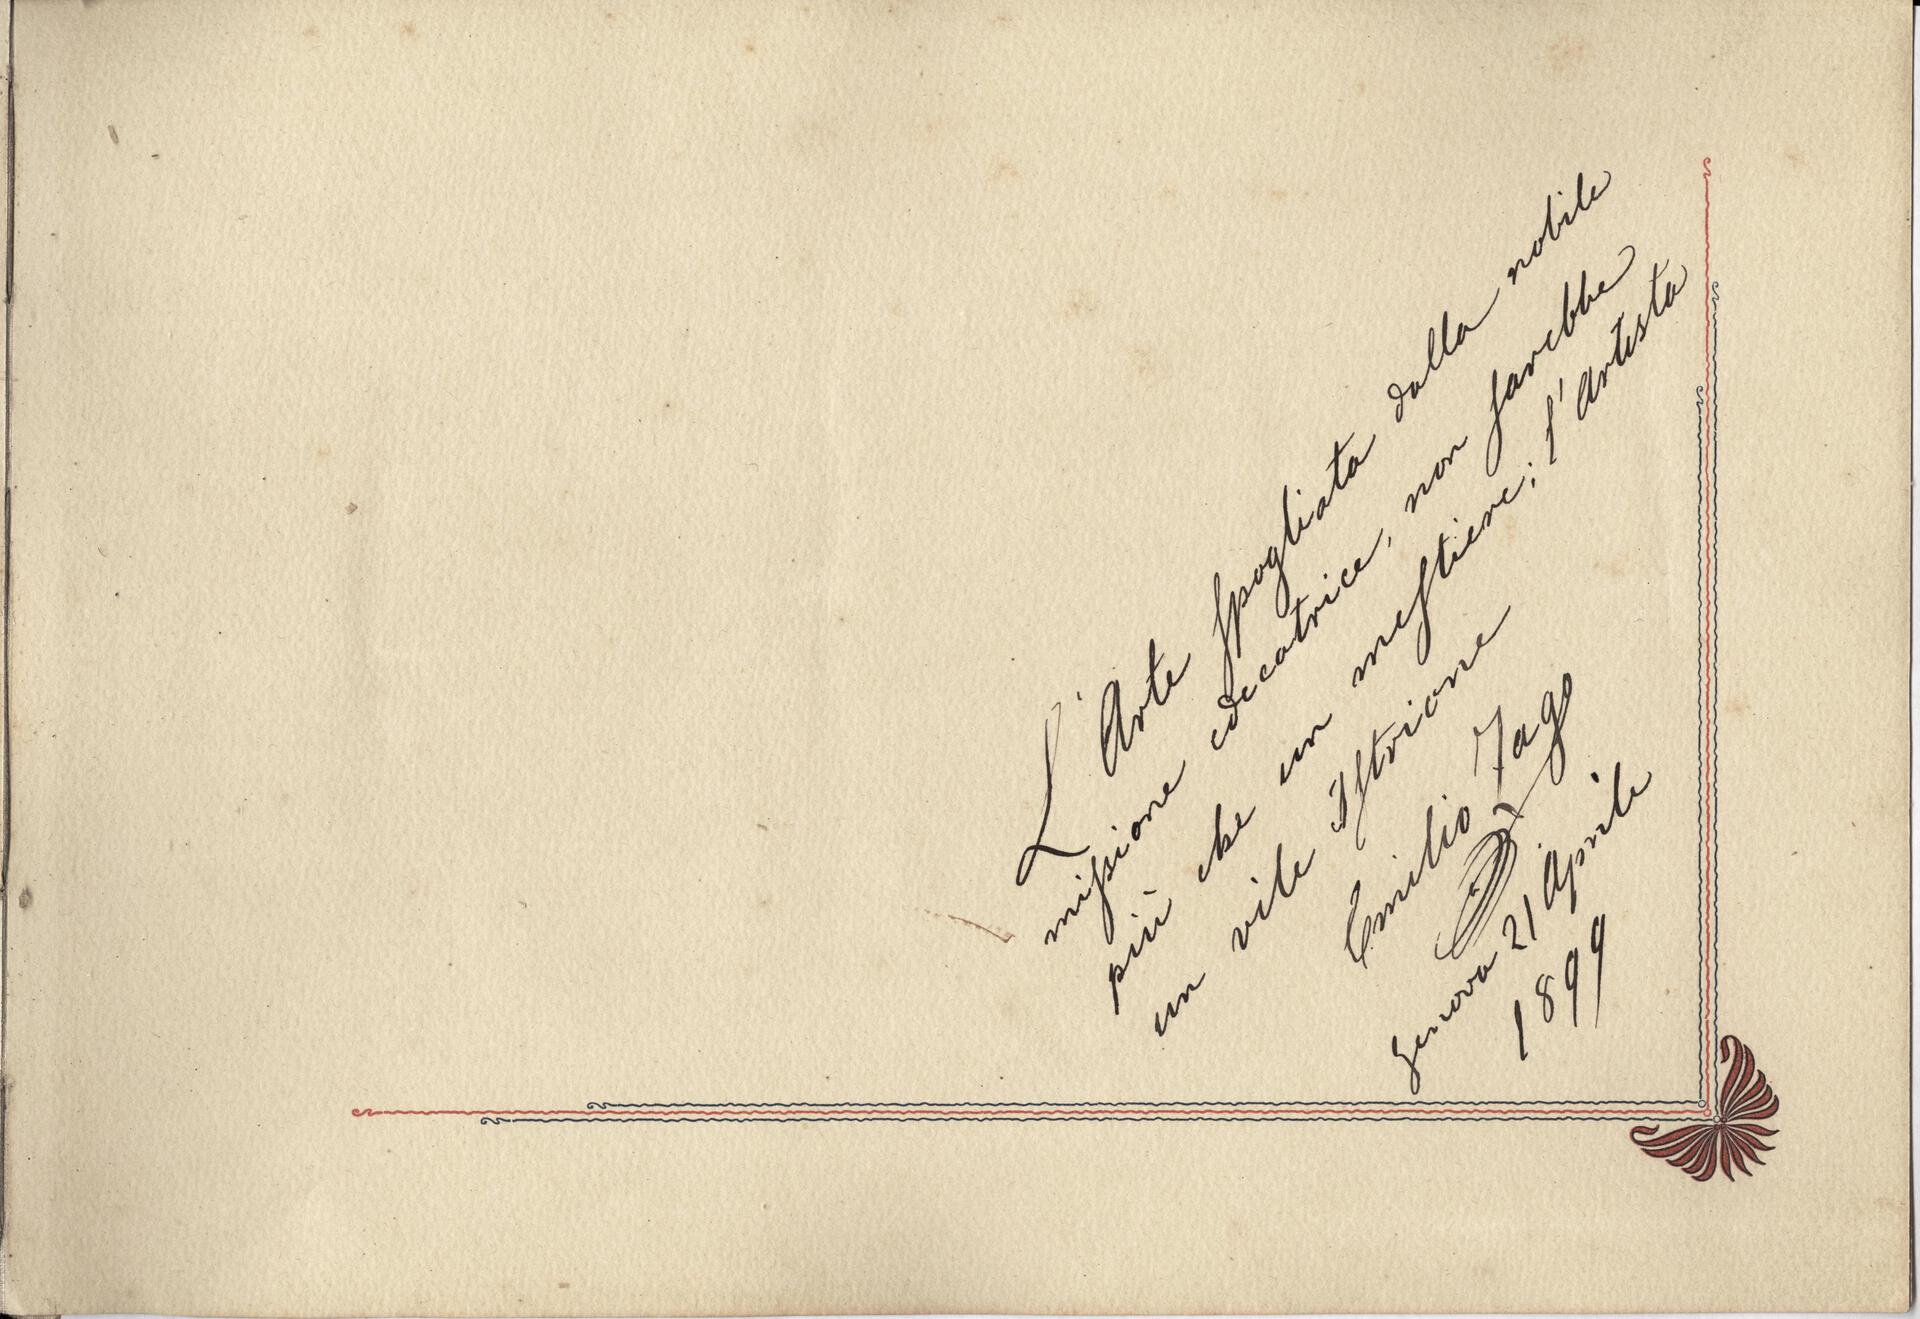 L'Arte spogliata dalla nobile
missione educatrice, non sarebbe
più che un mestiere; l'Artista
un vile Istrione
Emilio Zago
Genova 21 Aprile
1899